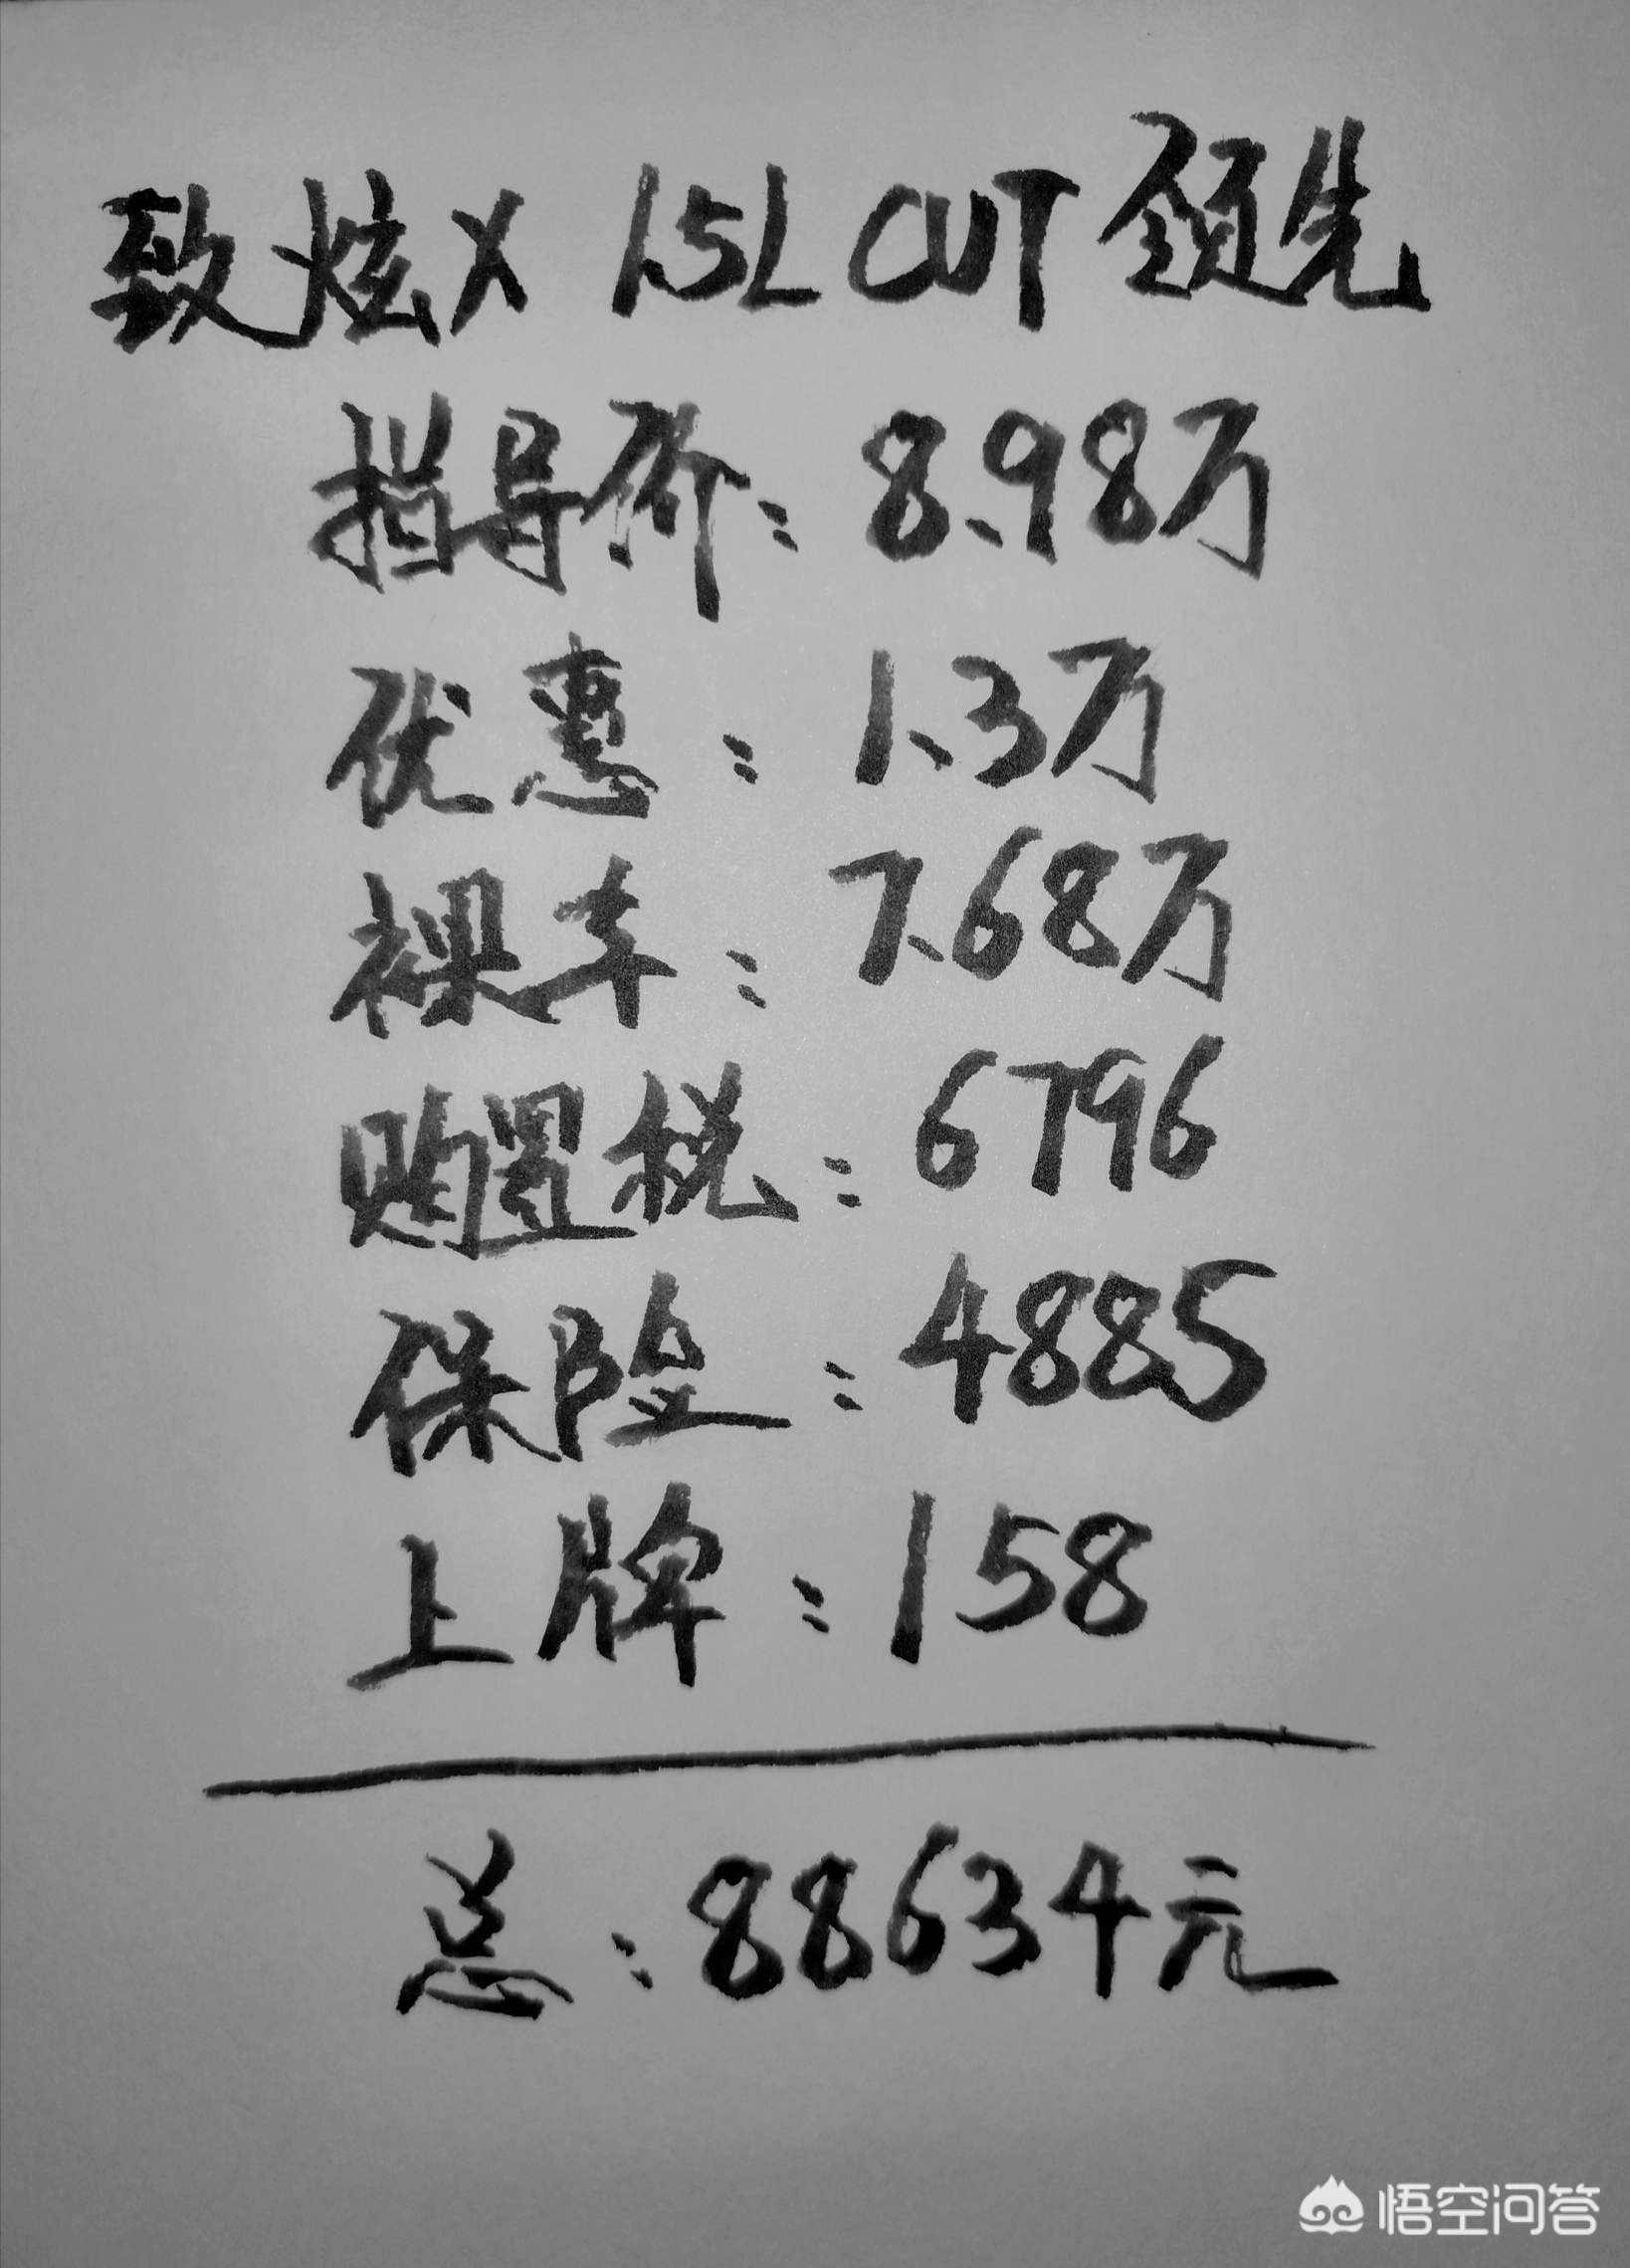 致炫X 1.5L CUT 领先
指导价：8.98万
优惠：1.3万
裸车：7.68万
购置税：6796
保险：4885
上牌：158
总：88634元
悟空问答